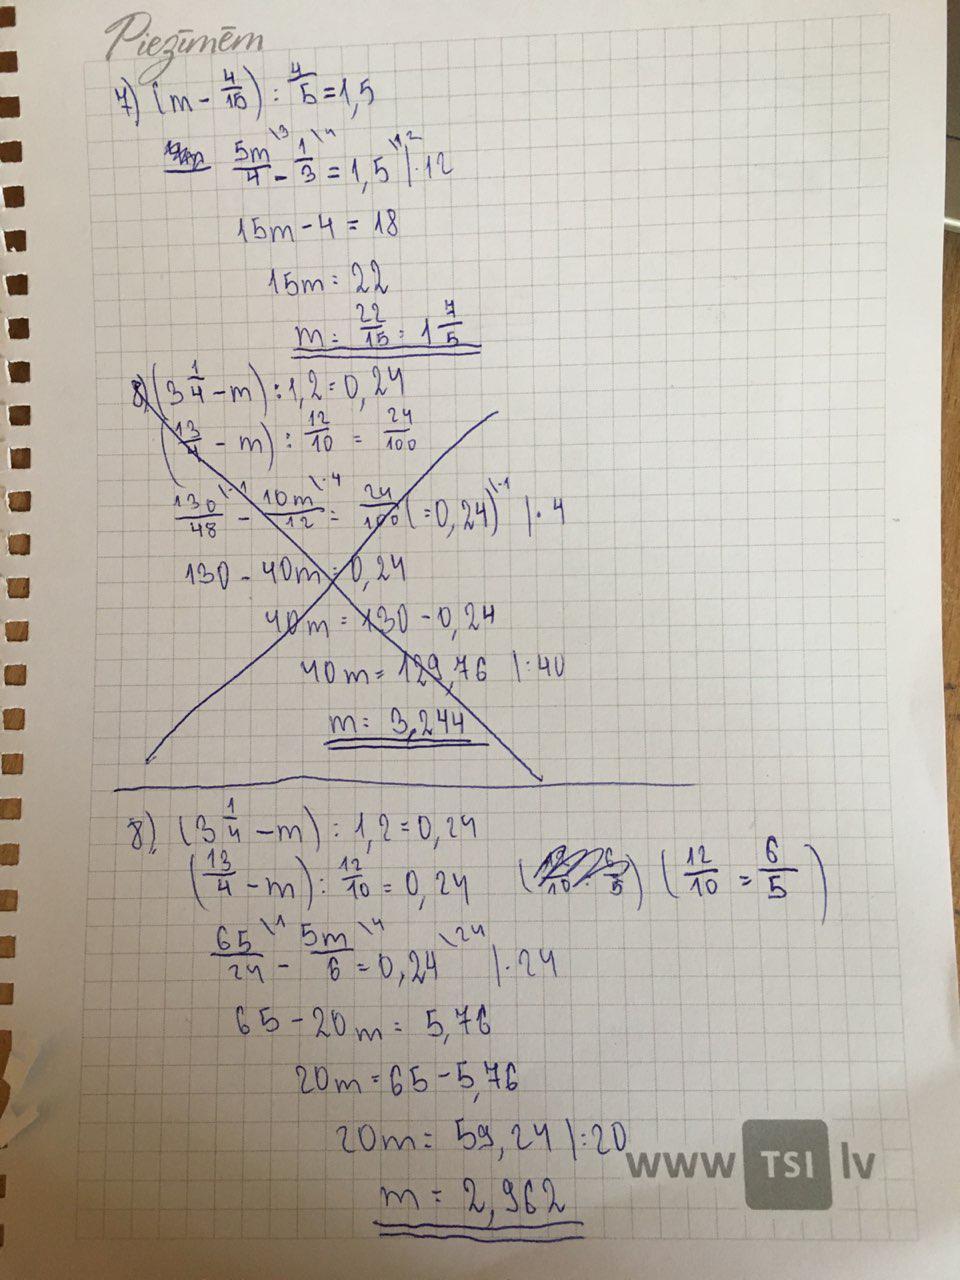 Piezīmēm
7) (m - 4/15) : 4/5 = 1,5
5m/4 \3 - 1/3 \4 = 1,5 \12 | · 12
15m - 4 = 18
15m = 22
m = 22/15 = 1 7/5
8) (3 1/4 - m) : 1,2 = 0,24
(13/4 - m) : 12/10 = 24/100
130/48 \·1 - 10m/12 \·4 = 24/100 (= 0,24) \·1 | · 4
130 - 40m = 0,24
40m = 130 - 0,24
40m = 129,76 | : 40
m = 3,244
8) (3 1/4 - m) : 1,2 = 0,24
(13/4 - m) : 12/10 = 0,24 (12/10 = 6/5)
65/24 \1 - 5m/6 \4 = 0,24 \24 | · 24
65 - 20m = 5,76
20m = 65 - 5,76
20m = 59,24 | : 20
m = 2,962
www TSI lv